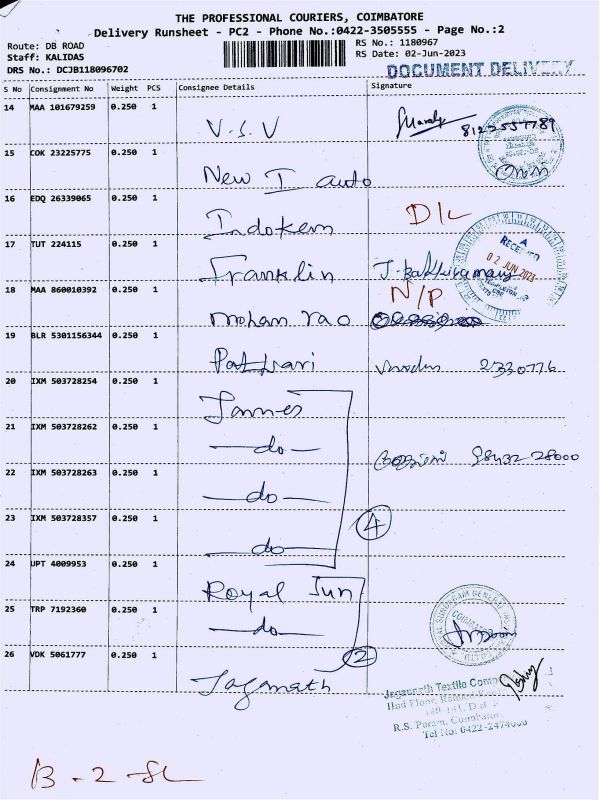 THE PROFESSIONAL COURIERS, COIMBATORE
Delivery Runsheet - PC2 - Phone No.:0422-3505555 - Page No.:2
Route: DB ROAD
Staff: KALIDAS
DRS No.: DCJB118096702
RS No.: 1180967
RS Date: 02-Jun-2023
DOCUMENT DELIVERY
S No Consignment No Weight PCS Consignee Details Signature
14 MAA 101679259 0.250 1
V.S.V 8122557789
15 COK 23225775 0.250 1
New I auto
16 EDQ 26339065 0.250 1
Indokem D/L
17 TUT 224115 0.250 1
RECEIVED
02 JUN 2023
Franklin
18 MAA 860010392 0.250 1
N/P
mohan rao
19 BLR 5301156344 0.250 1
Pathari 2330776
20 IXM 503728254 0.250 1
21 IXM 503728262 0.250 1
do
98432 28000
22 IXM 503728263 0.250 1
do
23 IXM 503728357 0.250 1
do 4
24 UPT 4009953 0.250 1
Royal Sun
25 TRP 7192360 0.250 1
do
26 VDK 5061777 0.250 1
2
Jaganath
Jagannath Textile Comp
R.S. Puram, Coimbator
Tel No: 0422-2474000
B-2-SL